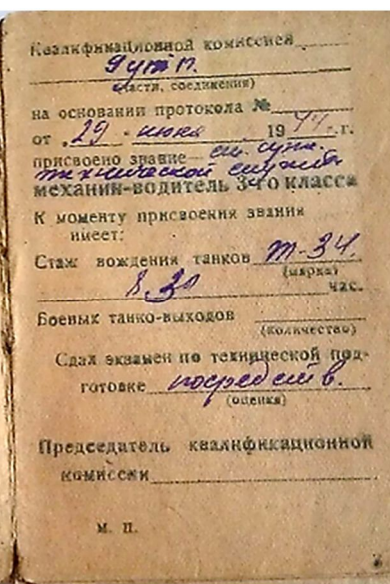 Квалификационной комиссией
(части, соединения)
на основании протокола №
от „29" июня 1944 г.
присвоено звание
технической службы
механик-водитель 3-го класса
К моменту присвоения звания
имеет:
Стаж вождения танков Т-34.
(марка)
8.30 час.
Боевых танко-выходов
(количество)
Сдал экзамен по технической под-
готовке посредств.
(оценка)
Председатель квалификационной
комиссии
М. П.